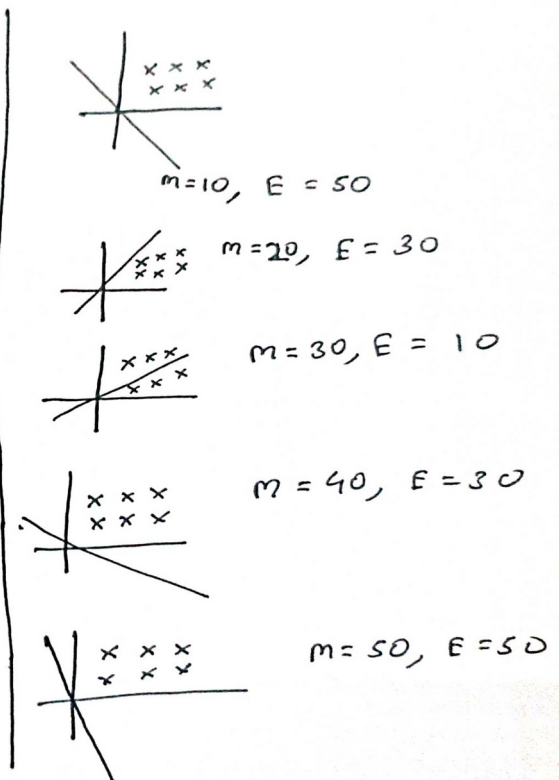 m=10, E = 50
m=20, E = 30
m=30, E = 10
m = 40, E = 30
m= 50, E =50